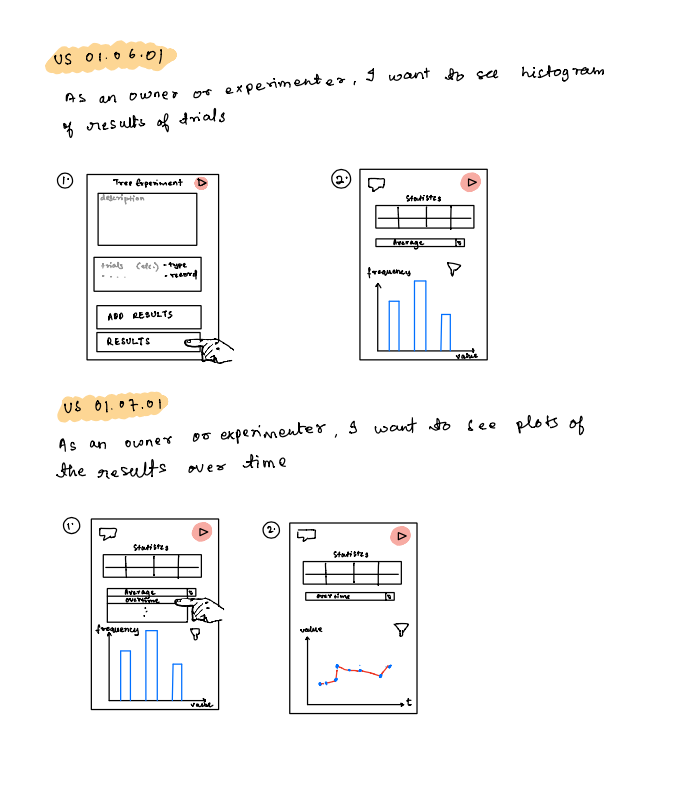 US 01.06.01
As an owner or experimenter, I want to see histogram
of results of trials
1.
Tree Experiment
description
trials (etc.) • type
• record
ADD RESULTS
RESULTS
2.
Statistics
Average
frequency
value
US 01.07.01
As an owner or experimenter, I want to see plots of
the results over time
1.
Statistics
Average
overtime
frequency
value
2.
Statistics
overtime
value
t